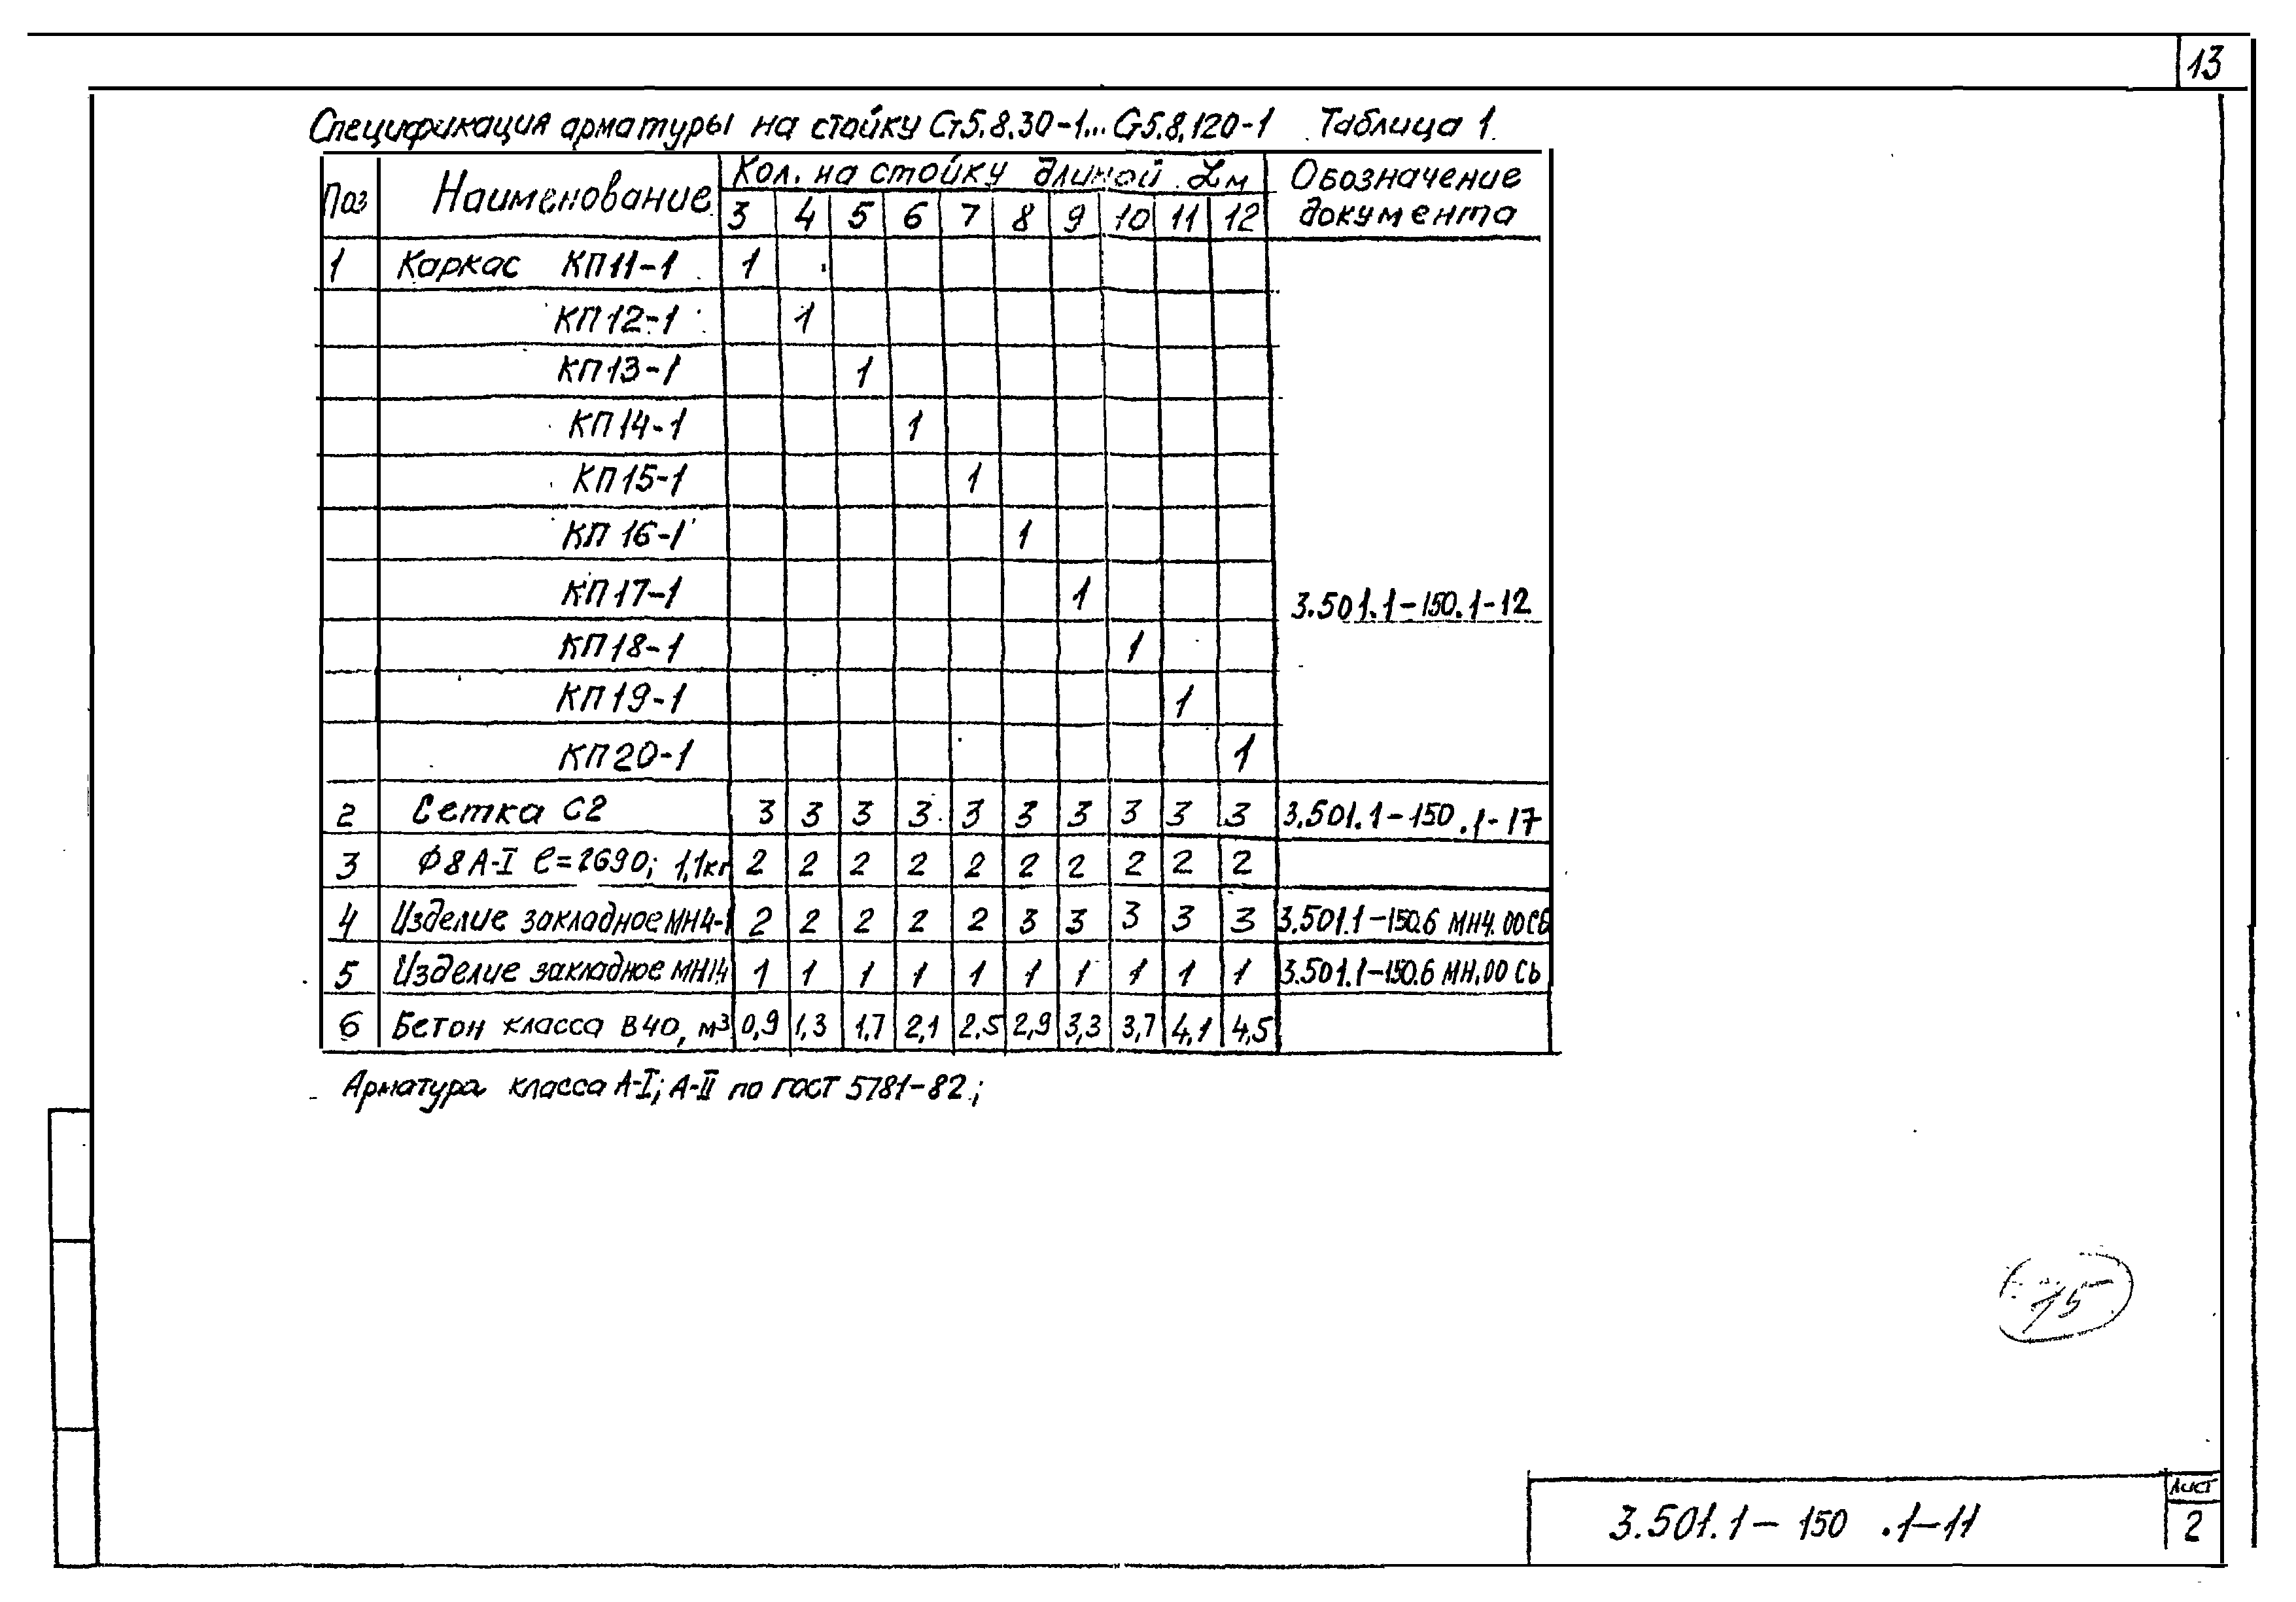 13
Спецификация арматуры на стойку Ст5.8.30-1... Ст5.8.120-1 Таблица 1
Поз Наименование Кол. на стойку длиной L м Обозначение документа
3 4 5 6 7 8 9 10 11 12
1 Каркас КП11-1 1
КП12-1 1
КП13-1 1
КП14-1 1
КП15-1 1
КП 16-1 1
КП17-1 1 3.501.1-150.1-12
КП18-1 1
КП19-1 1
КП20-1 1
2 Сетка С2 3 3 3 3 3 3 3 3 3 3 3.501.1-150.1-17
3 Ф8А-I ℓ=2690; 1,1кг 2 2 2 2 2 2 2 2 2 2
4 Изделие закладное МН4-1 2 2 2 2 2 3 3 3 3 3 3.501.1-150.6 МН4.00СБ
5 Изделие закладное МН14 1 1 1 1 1 1 1 1 1 1 3.501.1-150.6 МН.00 СБ
6 Бетон класса В40, м³ 0,9 1,3 1,7 2,1 2.5 2,9 3,3 3,7 4,1 4,5
Арматура класса А-I; А-II по ГОСТ 5781-82.;
15
3.501.1-150 .1-11
Лист
2